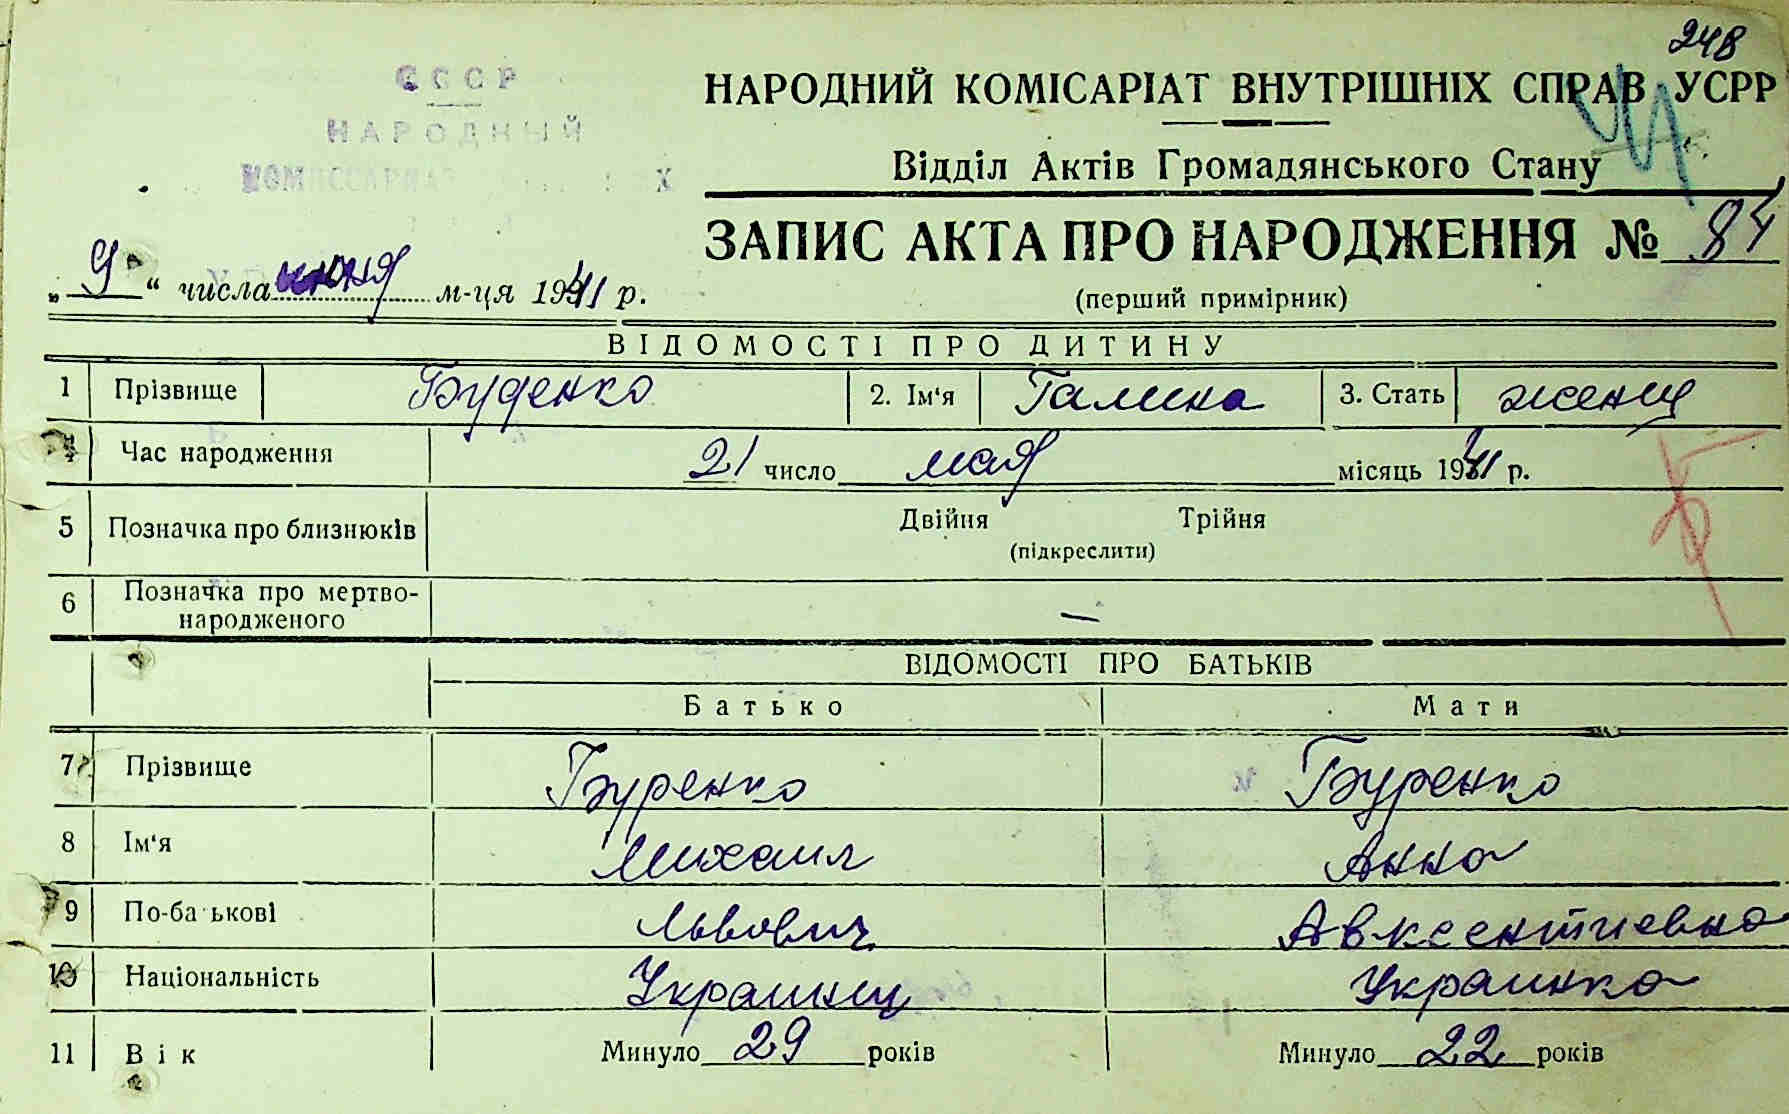 248
СССР
НАРОДНЫЙ
НАРОДНИЙ КОМІСАРІАТ ВНУТРІШНІХ СПРАВ УСРР
Відділ Актів Громадянського Стану
ЗАПИС АКТА ПРО НАРОДЖЕННЯ № 84
„ 9 “ числа июня м-ця 1941 р.
(перший примірник)
ВІДОМОСТІ ПРО ДИТИНУ
1 Прізвище Буденко 2. Ім‘я Галина 3. Стать женщ
4 Час народження 21 число мая місяць 1941 р.
5 Позначка про близнюків Двійня Трійня
(підкреслити)
6 Позначка про мертво-
народженого —
ВІДОМОСТІ ПРО БАТЬКІВ
Батько Мати
7 Прізвище Буренко Буренко
8 Ім‘я Михаил Анна
9 По-батькові Львович Авксентиевна
10 Національність Украинец Украинка
11 Вік Минуло 29 років Минуло 22 років